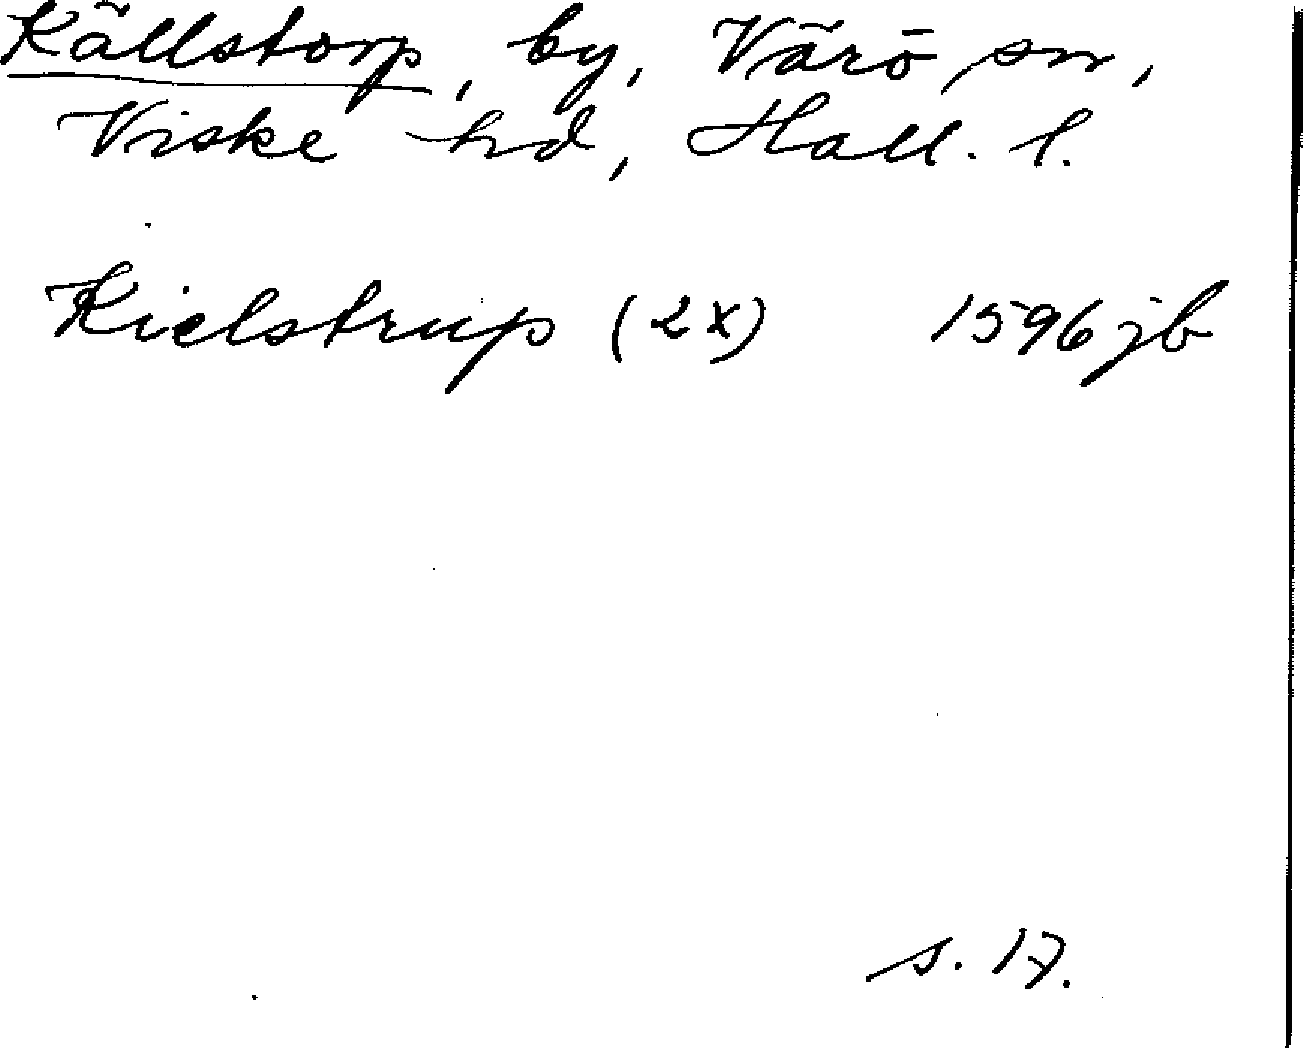 Källstorp, by, Värö sn,
Viske hd, Hall. l.
Kielstrup (2x) 1596 jb
s. 17.